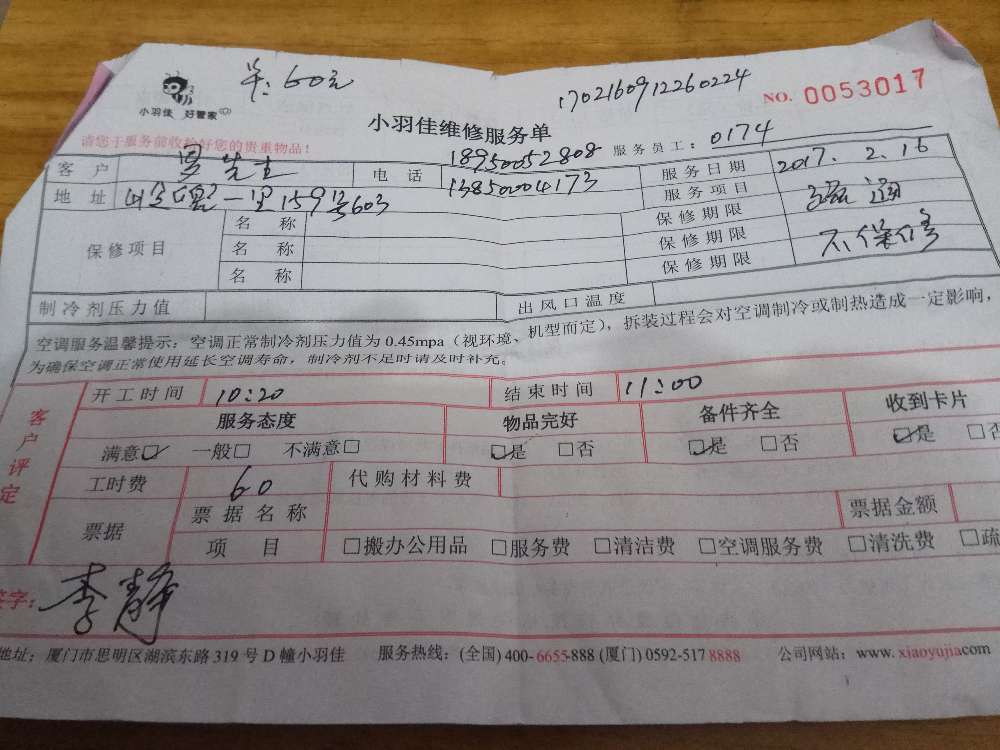 单:60元
1702160912260224
NO. 0053017
小羽佳 好管家
小羽佳维修服务单
请您于服务前收拾好您的贵重物品!
服务员工: 0174
客户 罗先生 电话 18950052808 13850004173 服务日期 2017.2.16
地址 一里159号603 服务项目 疏通
保修项目 名称 保修期限
名称 保修期限 不保修
名称 保修期限
制冷剂压力值 出风口温度
空调服务温馨提示:空调正常制冷剂压力值为0.45mpa(视环境、机型而定),拆装过程会对空调制冷或制热造成一定影响,
为确保空调正常使用延长空调寿命,制冷剂不足时请及时补充。
客户评定
开工时间 10:20 结束时间 11:00
服务态度 物品完好 备件齐全 收到卡片
满意☑ 一般□ 不满意□ ☑是 □否 ☑是 □否 ☑是 □否
工时费 60 代购材料费
票据 票据名称 票据金额
项目 □搬办公用品 □服务费 □清洁费 □空调服务费 □清洗费 □疏
签字: 李静
地址:厦门市思明区湖滨东路319号D幢小羽佳 服务热线:(全国)400-6655-888(厦门)0592-5178888 公司网站:www.xiaoyujia.com